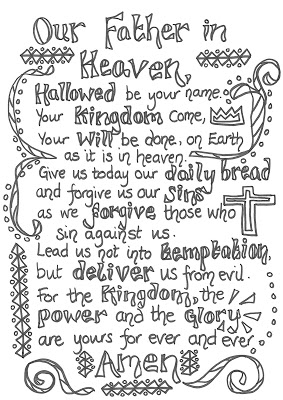 Our Father in
Heaven,
Hallowed be your name.
Your Kingdom come,
Your Will be done, on Earth
as it is in heaven.
Give us today our daily bread
and forgive us our sins
as we forgive those who
sin against us.
Lead us not into temptation,
but deliver us from evil.
For the Kingdom, the
power and the Glory
are yours for ever and ever
Amen